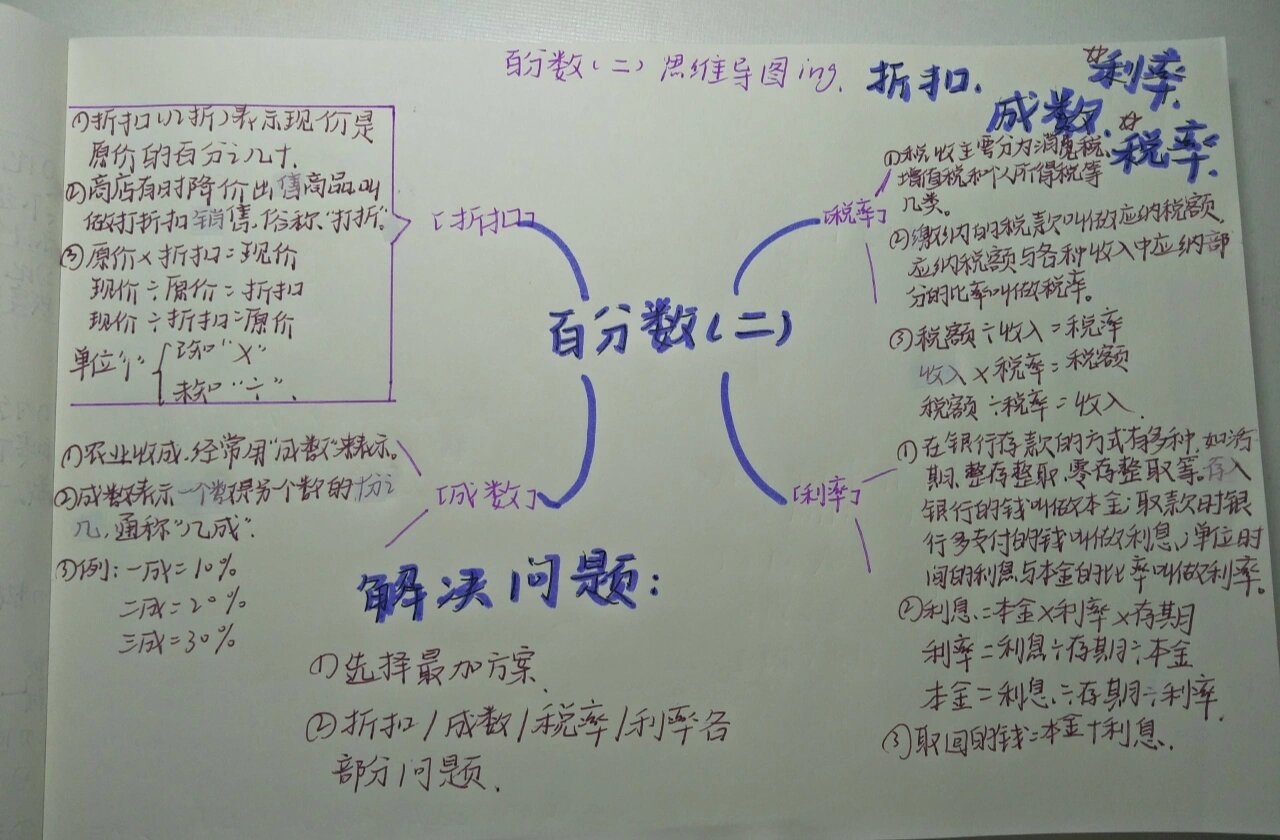 百分数(二)思维导图ing.
折扣.
利率.
成数.
税率.
①折扣(几折)表示现价是
原价的百分之几十.
②商店有时降价出售商品,叫
做打折扣销售.俗称."打折".
③原价×折扣=现价
现价÷原价=折扣
现价÷折扣=原价
单位"1"
已知"×"
未知"÷".
「折扣」
①农业收成.经常用"成数"来表示。
②成数表示一个数是另一个数的十分之
几,通称"几成".
③例:一成=10%
二成=20%
三成=30%
「成数」
百分数(二)
「税率」
①税收主要分为消费税、
增值税和个人所得税等
几类。
②缴纳的税款叫做应纳税额.
应纳税额与各种收入中应纳部
分的比率叫做税率。
③税额÷收入=税率
收入×税率=税额
税额÷税率=收入.
「利率」
①在银行存款的方式有多种,如活
期.整存整取.零存整取等。存入
银行的钱叫做本金;取款时银
行多支付的钱叫做利息;单位时
间的利息与本金的比率叫做利率。
②利息=本金×利率×存期
利率=利息÷存期÷本金
本金=利息÷存期÷利率.
③取回的钱=本金+利息.
解决问题:
①选择最加方案.
②折扣/成数/税率/利率各
部分问题.